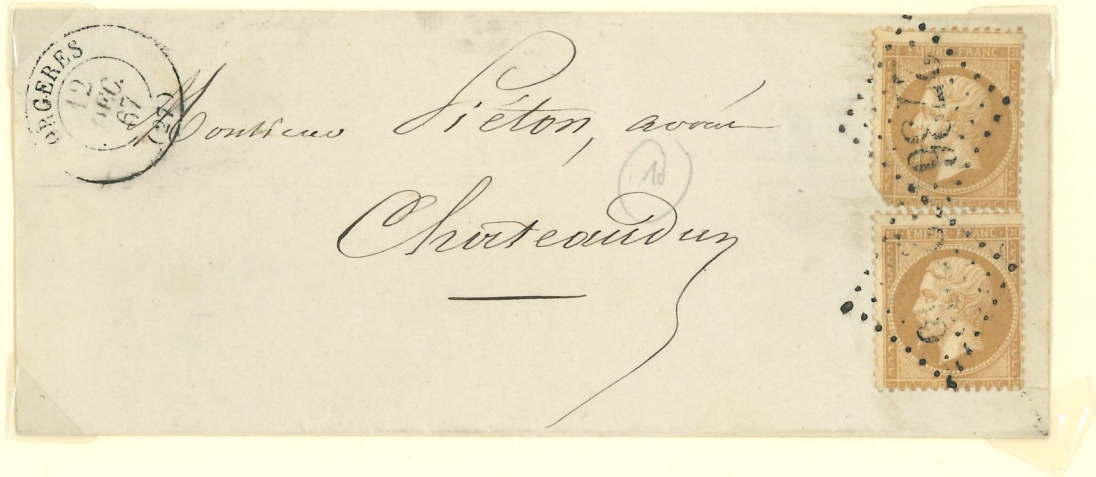 ORGERES
12
DEC.
67
(27)
Monsieur Piéton, avoué
Chateaudun
10
EMPIRE FRANC
2736
EMPIRE FRANC
POSTES